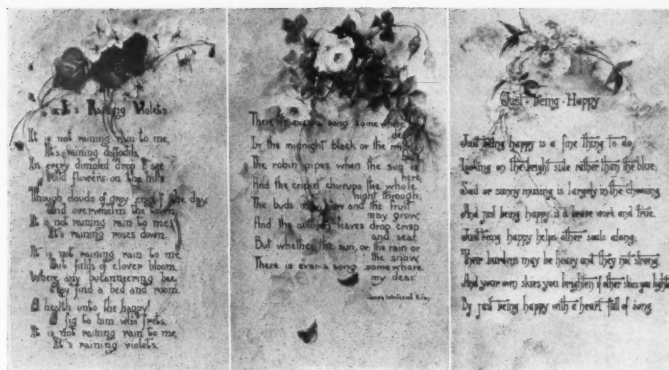 It's Raining Violets
It is not raining rain to me,
It's raining daffodils.
In every dimpled drop I see
Wild flowers on the hills.
Though clouds of gray engulf the day
and overwhelm the town,
It is not raining rain to me,
It's raining roses down.
It is not raining rain to me,
But fields of clover bloom,
Where any buccaneering bee,
May find a bed and room.
A health unto the happy!
A fig to him who frets.
It is not raining rain to me,
It's raining violets.
There is ever a song somewhere
my dear
In the midnight black or the midday
blue
The robin pipes when the sun is
here
And the cricket chirrups the whole
night through;
The buds may blow and the fruit
may grow
And the autumn leaves drop crisp
and sear
But whether the sun, or the rain or
the snow
There is ever a song somewhere
my dear
James Whitcomb Riley
Just Being Happy
Just being happy is a fine thing to do,
Looking on the bright side rather than the blue;
Sad or sunny musing is largely in the choosing
And just being happy is a brave work and true.
Just being happy helps other souls along,
Their burdens may be heavy and they not strong
And your own skies you brighten if other skies you lighten
By just being happy with a heart full of song